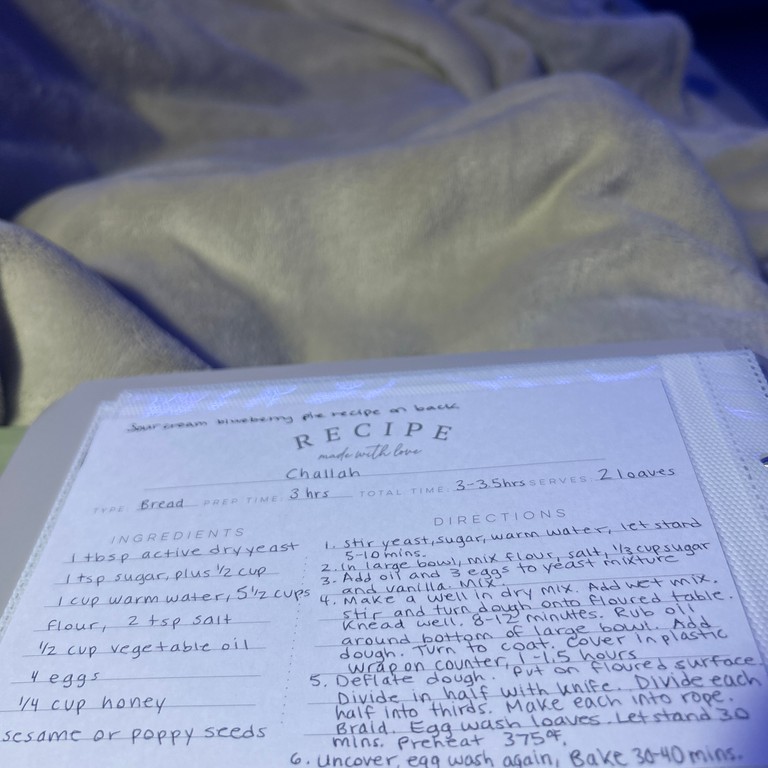 Sour cream blueberry pie recipe on back
RECIPE
made with love
Challah
TYPE: Bread PREP TIME: 3 hrs TOTAL TIME: 3-3.5hrs SERVES: 2 loaves
INGREDIENTS
1 tbsp active dry yeast
1 tsp sugar, plus 1/2 cup
1 cup warm water, 5 1/2 cups
flour, 2 tsp salt
1/2 cup vegetable oil
4 eggs
1/4 cup honey
sesame or poppy seeds
DIRECTIONS
1. stir yeast, sugar, warm water, let stand
5-10 mins.
2. in large bowl, mix flour, salt, 1/3 cup sugar
3. Add oil and 3 eggs to yeast mixture
and vanilla. Mix.
4. Make a well in dry mix. Add wet mix.
stir and turn dough onto floured table.
Knead well. 8-12 minutes. Rub oil
around bottom of large bowl. Add
dough. Turn to coat. Cover in plastic
wrap on counter, 1-1.5 hours
5. Deflate dough. Put on floured surface.
Divide in half with knife. Divide each
half into thirds. Make each into rope.
Braid. Egg wash loaves. Let stand 30
mins. Preheat 375°F.
6. Uncover, egg wash again, Bake 30-40 mins.